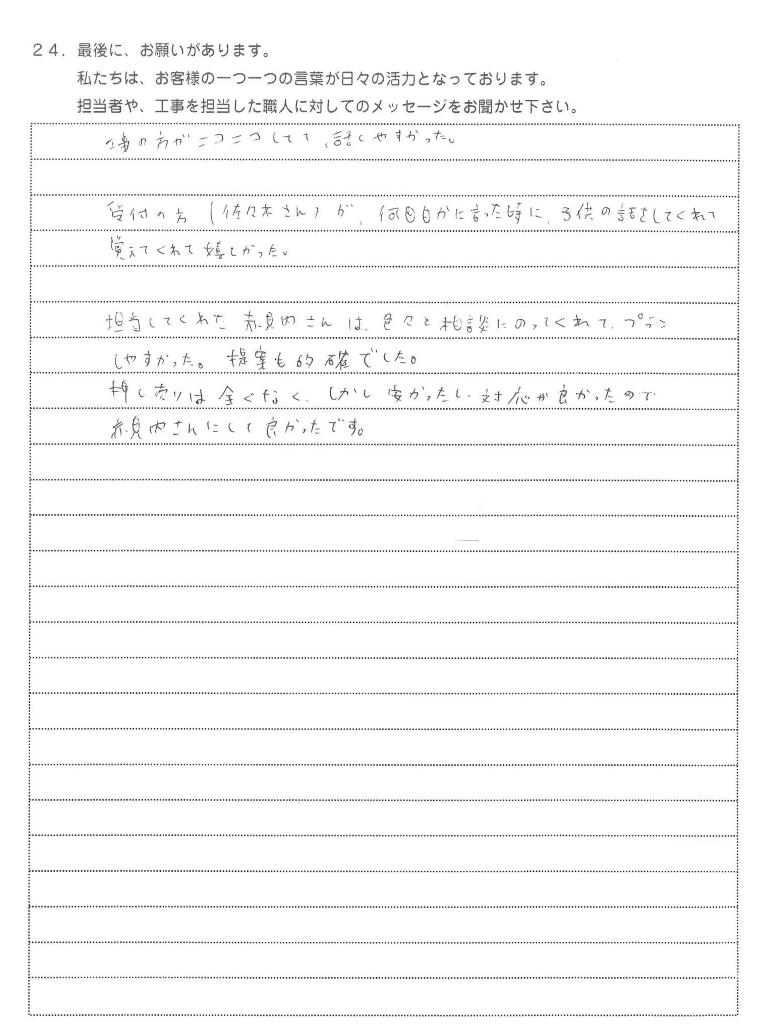 24．最後に、お願いがあります。
私たちは、お客様の一つ一つの言葉が日々の活力となっております。
担当者や、工事を担当した職人に対してのメッセージをお聞かせ下さい。
の方がニコニコしてて、話しやすかった。
受付の方（佐々木さん）が、何回目かに言った時に、子供の話をしてくれて
覚えてくれて嬉しかった。
担当してくれた赤見内さんは、色々と相談にのってくれて、プラン
しやすかった。提案も的確でした。
押し売りは全くなく、しかし安かったし、対応が良かったので
赤見内さんにして良かったです。